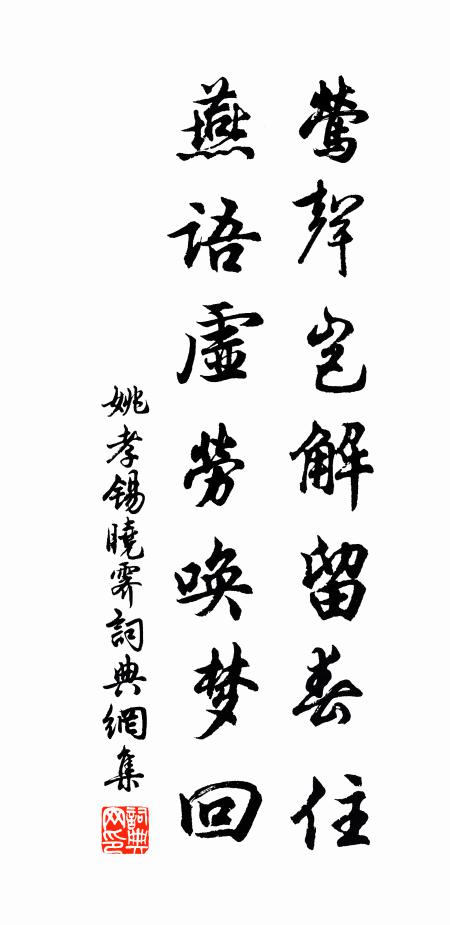 鶯聲豈解留春住
燕語虛勞喚梦回
姚孝錫曉霽詞典網集
詞典网印